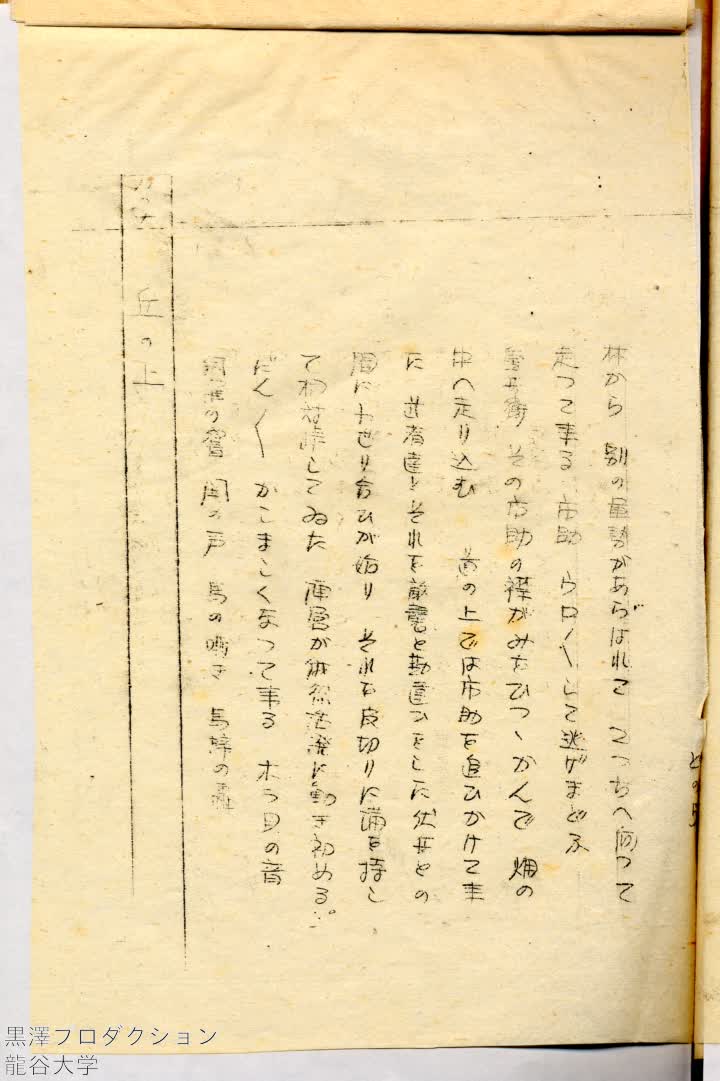 林から 別の軍勢があらはれて こつちへ向つて
走つて来る 市助 ウロ〱して逃げまどふ
その市助の襟がみをひつゝかんで 畑の
中へ走り込む 道の上では市助を追ひかけて来
た 武者達とそれを敵襲と勘違ひをした伏兵との
間にわせり合ひが始り それを皮切りに満を持し
て相対峙してゐた 陣営が俄然活溌に動き初める
だん〱 かしましくなつて来る ホラ貝の音
の響 鬨の声 馬の嘶き 馬蹄の轟
丘の上
黒澤プロダクション
龍谷大学